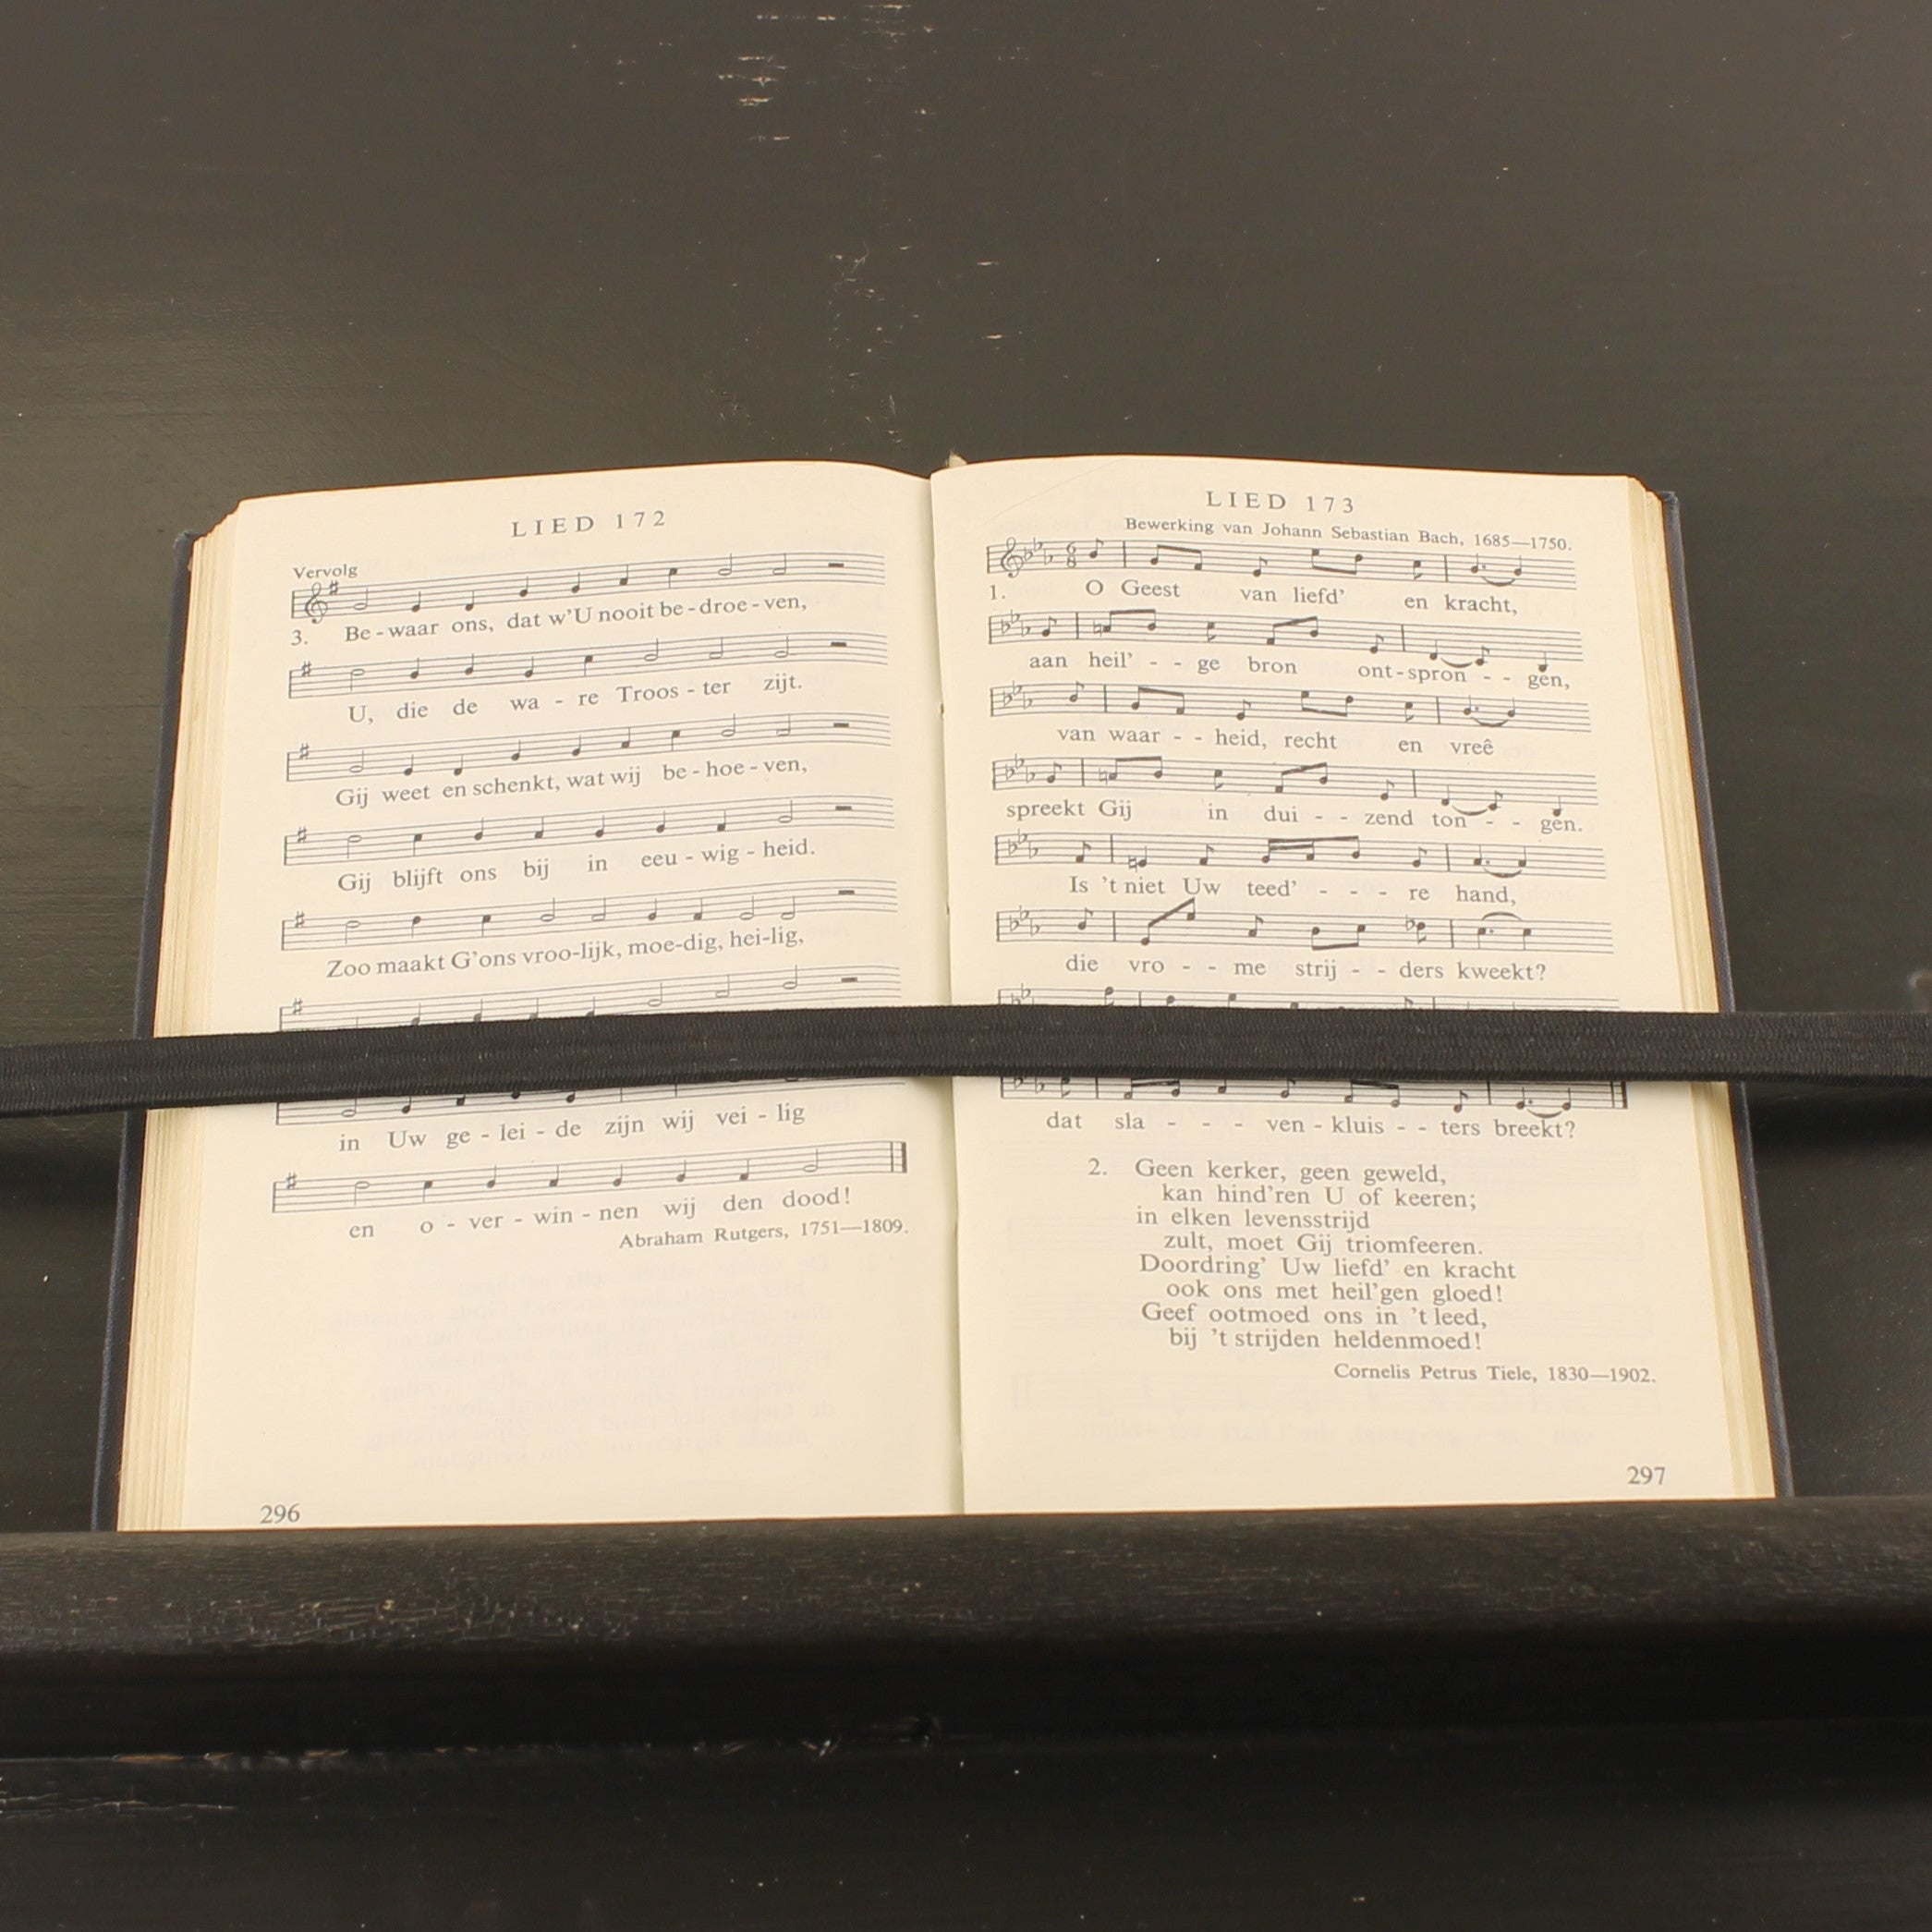 LIED 172
Vervolg
3. Be - waar ons, dat w'U nooit be - droe - ven,
U, die de wa - re Troos - ter zijt.
Gij weet en schenkt, wat wij be - hoe - ven,
Gij blijft ons bij in eeu - wig - heid.
Zoo maakt G'ons vroo-lijk, moe-dig, hei-lig,
in Uw ge - lei - de zijn wij vei - lig
en o - ver - win - nen wij den dood!
Abraham Rutgers, 1751—1809.
296
LIED 173
Bewerking van Johann Sebastian Bach, 1685—1750.
1. O Geest van liefd' en kracht,
aan heil' - - ge bron ont - spron - - gen,
van waar - - heid, recht en vreê
spreekt Gij in dui - - zend ton - - gen.
Is 't niet Uw teed' - - - re hand,
die vro - - me strij - - ders kweekt?
dat sla - - - ven - kluis - - ters breekt?
2. Geen kerker, geen geweld,
kan hind'ren U of keeren;
in elken levensstrijd
zult, moet Gij triomfeeren.
Doordring' Uw liefd' en kracht
ook ons met heil'gen gloed!
Geef ootmoed ons in 't leed,
bij 't strijden heldenmoed!
Cornelis Petrus Tiele, 1830—1902.
297